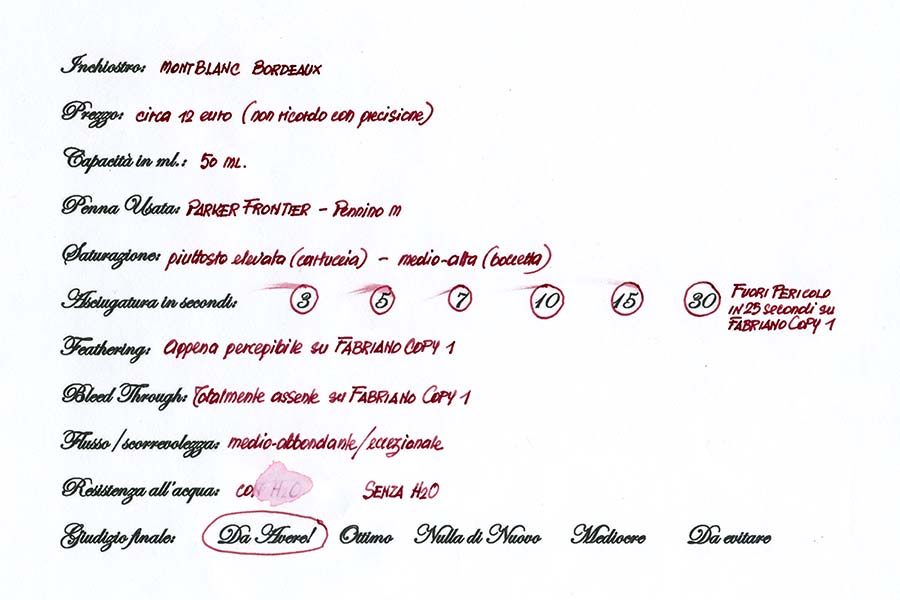 Inchiostro: MONTBLANC BORDEAUX
Prezzo: circa 12 euro (non ricordo con precisione)
Capacità in ml.: 50 ML.
Penna Usata: PARKER FRONTIER – Pennino M
Saturazione: piuttosto elevata (cartuccia) – medio-alta (boccetta)
Asciugatura in secondi: 3 5 7 10 15 30 FUORI PERICOLO
IN 25 secondi su
FABRIANO COPY 1
Feathering: Appena percepibile su FABRIANO COPY 1
Bleed Through: Totalmente assente su FABRIANO COPY 1
Flusso/scorrevolezza: medio-abbondante/eccezionale
Resistenza all'acqua: CON H2O SENZA H2O
Giudizio finale: Da Avere! Ottimo Nulla di Nuovo Mediocre Da evitare